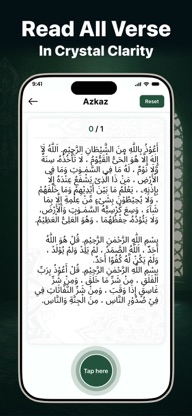 Read All Verse
In Crystal Clarity
9:41
Azkaz
Reset
0 / 1
أَعُوذُ بِاللَّهِ مِنَ الشَّيْطَانِ الرَّجِيمِ. اللَّهُ لَا
إِلَهَ إِلَّا هُوَ الْحَيُّ الْقَيُّومُ ، لَا تَأْخُذُهُ سِنَةٌ
وَلَا نَوْمٌ ، لَهُ مَا فِي السَّمَـٰوَتِ وَمَا فِي
الْأَرْضِ ، مَنْ ذَا الَّذِي يَشْفَعُ عِنْدَهُ إِلَّا
بِإِذْنِهِ ، يَعْلَمُ مَا بَيْنَ أَيْدِيهِمْ وَمَا خَلْفَهُمْ
، وَلَا يُحِيطُونَ بِشَيْءٍ مِّنْ عِلْمِهِ إِلَّا بِمَا
شَاءَ ، وَسِعَ كُرْسِيُّهُ السَّمَـٰوَتِ وَالْأَرْضَ،
وَلَا يَئُودُهُ حِفْظُهُمَا ، وَهُوَ الْعَلِيُّ الْعَظِيمُ.
بِسْمِ اللَّهِ الرَّحْمَنِ الرَّحِيمِ. قُلْ هُوَ اللَّهُ
أَحَدٌ ، اللَّهُ الصَّمَدُ ، لَمْ يَلِدْ وَلَمْ يُولَدْ ،
وَلَمْ يَكُنْ لَهُ كُفُوًا أَحَدٌ.
بِسْمِ اللَّهِ الرَّحْمَنِ الرَّحِيمِ. قُلْ أَعُوذُ بِرَبِّ
الْفَلَقِ ، مِنْ شَرِّ مَا خَلَقَ ، وَمِنْ شَرِّ
غَاسِقٍ إِذَا وَقَبَ ، وَمِنْ شَرِّ النَّفَّاثَاتِ فِي
فِي صُدُورِ النَّاسِ ، مِنَ الْجِنَّةِ وَالنَّاسِ.
Tap here